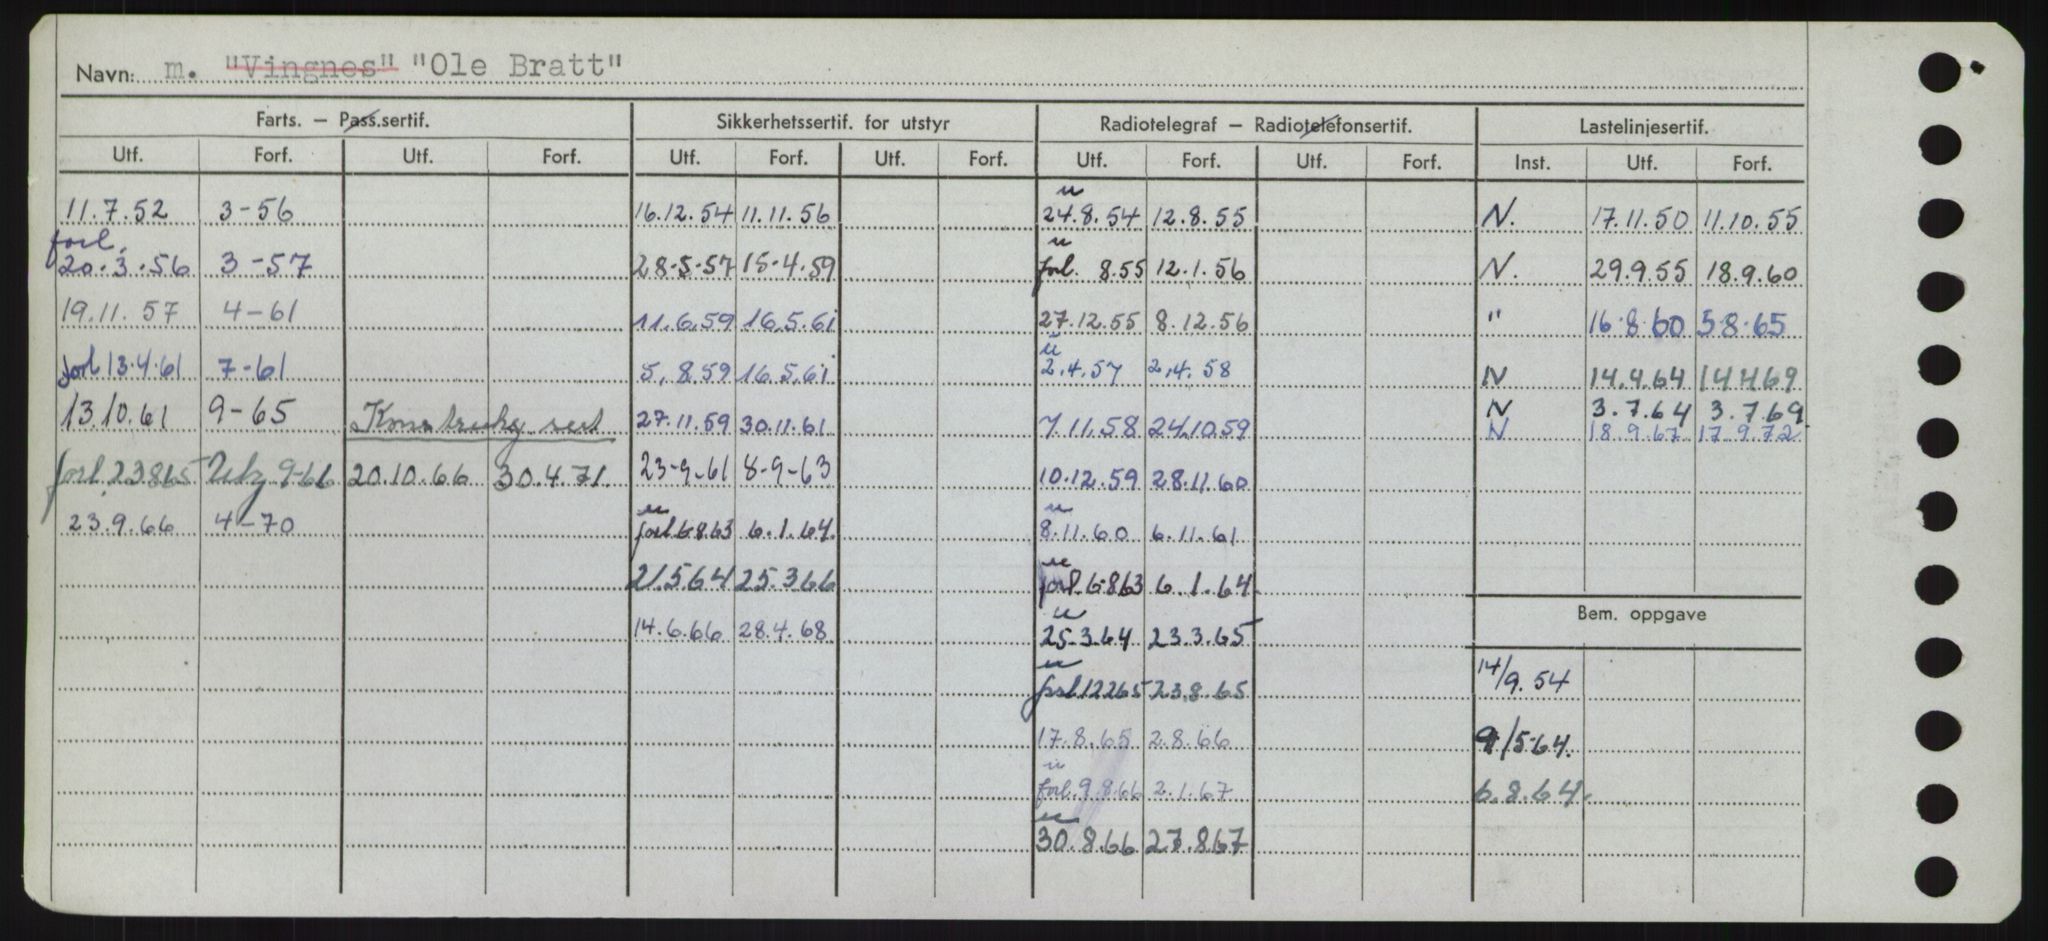 Navn: m. "Vingnes" "Ole Bratt"
Farts. — Pass.sertif. Sikkerhetssertif. for utstyr Radiotelegraf — Radiotelefonsertif. Lastelinjesertif.
Utf. Forf. Utf. Forf. Utf. Forf. Utf. Forf. Utf. Forf. Utf. Forf. Inst. Utf. Forf.
u
11.7.52 3-56 16.12.54 11.11.56 24.8.54 12.8.55 N. 17.11.50 11.10.55
forl. u
20.3.56 3-57 28-5-57 15-4.59 forl. 8.55 12.1.56 N. 29.9.55 18.9.60
19.11.57 4-61 11.6.59 16.5.61 27.12.55 8.12.56 " 16.8.60 5.8.65
u
forl 13.4.61 7-61 5.8.59 16.5.61 2.4.57 2.4.58 N 14.4.64 14.4.69
N 3.7.64 3.7.69
13.10.61 9-65 27.11.59 30.11.61 7.11.58 24.10.59 N 18.9.67 17.9.72
forl. 23865 9-66 20.10.66 30.4.71 23-9-61 8-9-63 10.12.59 28.11.60
u u
23.9.66 4-70 forl 6.8.63 6.1.64. 8.11.60 6.11.61
u
21.5.64 25.3.66 forl. 6.8.63 6.1.64
Bem. oppgave
u
14.6.66 28.4.68 25.3.64 23.3.65
u
forl 12265 23.8.65 14/9.54
17.8.65 2.8.66 9/5-64.
u
forl. 9.8.66 2.1.67 6.8.64.
u
30.8.66 27.8.67